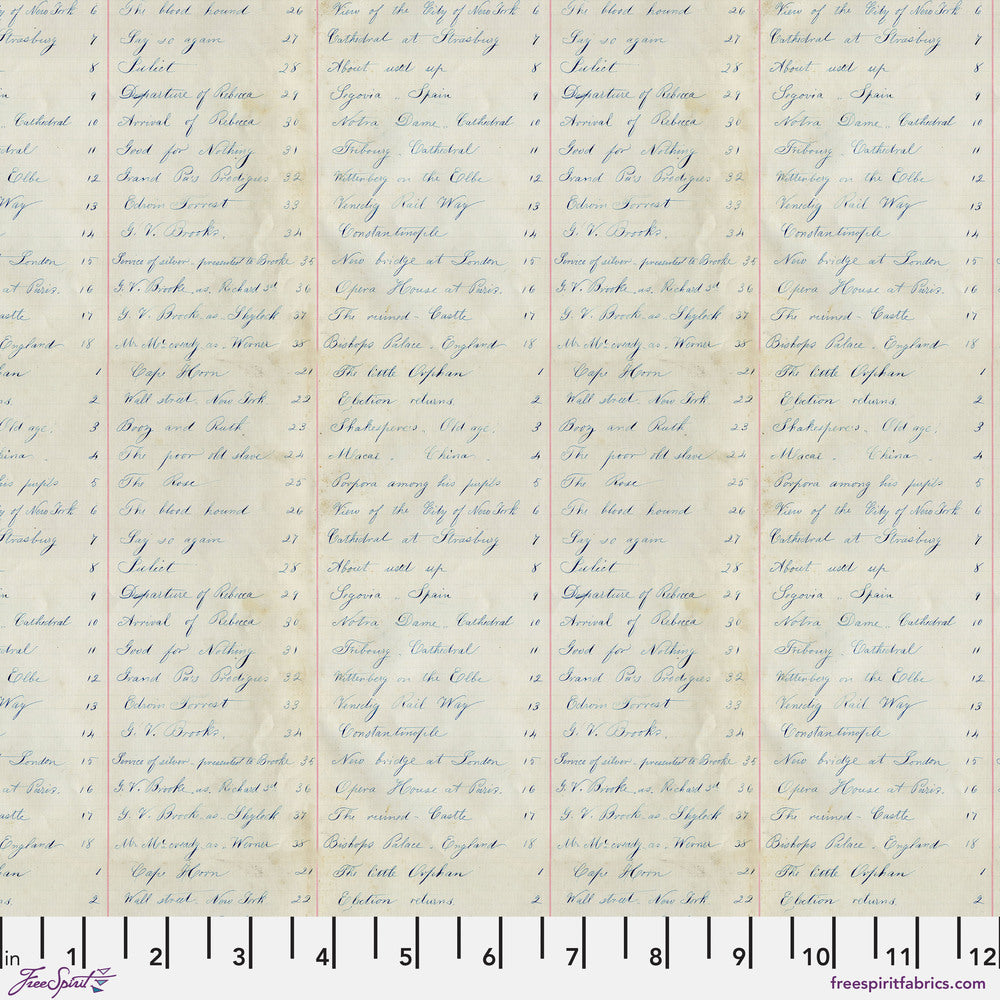 y of New York 6 The blood hound 26 View of the City of New York 6 The blood hound 26 View of the City of New York 6
Strasburg 7 Say so again 27 Cathedral at Strasburg 7 Say so again 27 Cathedral at Strasburg 7
8 Juliet 28 About used up 8 Juliet 28 About used up 8
9 Departure of Rebecca 29 Segovia .. Spain 9 Departure of Rebecca 29 Segovia .. Spain 9
.. Cathedral 10 Arrival of Rebecca 30 Notra Dame .. Cathedral 10 Arrival of Rebecca 30 Notra Dame .. Cathedral 10
dral 11 Good for Nothing 31 Fribourg . Cathedral 11 Good for Nothing 31 Fribourg . Cathedral 11
Elbe 12 Grand Pa's Prodigies 32 Wittenberg on the Elbe 12 Grand Pa's Prodigies 32 Wittenberg on the Elbe 12
Way 13 Edwin Forrest 33 Venedig Rail Way 13 Edwin Forrest 33 Venedig Rail Way 13
14 G. V. Brooke. 34 Constantinople 14 G. V. Brooke. 34 Constantinople 14
London 15 Service of silver - presented to Brooke 35 New bridge at London 15 Service of silver - presented to Brooke 35 New bridge at London 15
at Paris. 16 G. V. Brooke as. Richard 3rd 36 Opera House at Paris. 16 G. V. Brooke as. Richard 3rd 36 Opera House at Paris. 16
astle 17 G. V. Brooke as. Shylock 37 The ruined - Castle 17 G. V. Brooke as. Shylock 37 The ruined - Castle 17
England 18 Mr McCready as. Werner 38 Bishops Palace . England 18 Mr McCready as. Werner 38 Bishops Palace . England 18
han 1 Cape Horn 21 The little Orphan 1 Cape Horn 21 The little Orphan 1
ns 2 Wall street. New York 22 Election returns 2 Wall street. New York 22 Election returns 2
Old age. 3 Booz and Ruth. 23 Shakespere's . Old age. 3 Booz and Ruth. 23 Shakespere's . Old age. 3
hina . 4 The poor old slave 24 Macai . China . 4 The poor old slave 24 Macai . China . 4
his pupils 5 The Rose 25 Porpora among his pupils 5 The Rose 25 Porpora among his pupils 5
y of New York 6 The blood hound 26 View of the City of New York 6 The blood hound 26 View of the City of New York 6
Strasburg 7 Say so again 27 Cathedral at Strasburg 7 Say so again 27 Cathedral at Strasburg 7
8 Juliet 28 About used up 8 Juliet 28 About used up 8
9 Departure of Rebecca 29 Segovia .. Spain 9 Departure of Rebecca 29 Segovia .. Spain 9
.. Cathedral 10 Arrival of Rebecca 30 Notra Dame .. Cathedral 10 Arrival of Rebecca 30 Notra Dame .. Cathedral 10
dral 11 Good for Nothing 31 Fribourg . Cathedral 11 Good for Nothing 31 Fribourg . Cathedral 11
Elbe 12 Grand Pa's Prodigies 32 Wittenberg on the Elbe 12 Grand Pa's Prodigies 32 Wittenberg on the Elbe 12
Way 13 Edwin Forrest 33 Venedig Rail Way 13 Edwin Forrest 33 Venedig Rail Way 13
14 G. V. Brooke. 34 Constantinople 14 G. V. Brooke. 34 Constantinople 14
London 15 Service of silver - presented to Brooke 35 New bridge at London 15 Service of silver - presented to Brooke 35 New bridge at London 15
at Paris. 16 G. V. Brooke as. Richard 3rd 36 Opera House at Paris. 16 G. V. Brooke as. Richard 3rd 36 Opera House at Paris. 16
astle 17 G. V. Brooke as. Shylock 37 The ruined - Castle 17 G. V. Brooke as. Shylock 37 The ruined - Castle 17
England 18 Mr McCready as. Werner 38 Bishops Palace . England 18 Mr McCready as. Werner 38 Bishops Palace . England 18
han 1 Cape Horn 21 The little Orphan 1 Cape Horn 21 The little Orphan 1
ns 2 Wall street. New York 22 Election returns 2 Wall street. New York 22 Election returns 2
in 1 2 3 4 5 6 7 8 9 10 11 12
FreeSpirit
freespiritfabrics.com